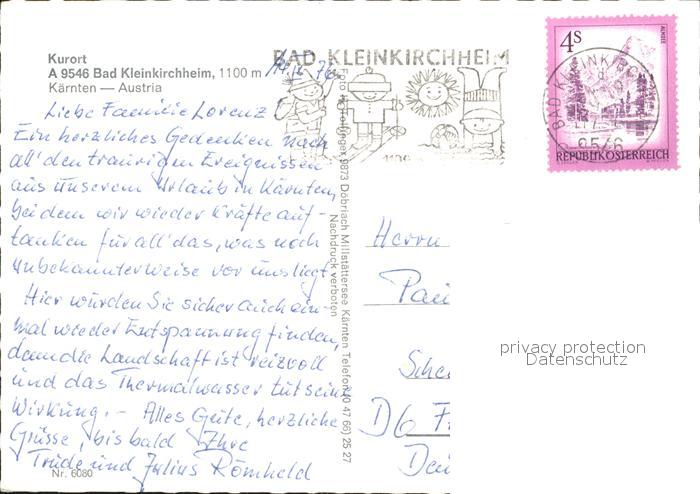 Kurort
A 9546 Bad Kleinkirchheim, 1100 m
Kärnten — Austria
Liebe Familie Lorenz
Ein herzliches Gedenken nach
all' den traurigen Ereignissen
aus unserem Urlaub in Kärnten,
bei dem wir wieder Kräfte auf-
tanken für all' das, was noch
unbekannterweise vor uns liegt.
Hier würden Sie sicher auch ein-
mal wieder Entspannung finden,
denn die Landschaft ist reizvoll
und das Thermalwasser tut seine
Wirkung. - Alles Gute, herzliche
Grüsse, bis bald Ihre
Trude und Julius Römheld
Nr. 6080
9873 Döbriach Millstättersee Kärnten Telefon (0 47 66) 25 27
Nachdruck verboten
BAD KLEINKIRCHHEIM
4 S
ALMSEE
REPUBLIK ÖSTERREICH
BAD KLEINKIRCH
9546
Herrn
Pau
Sche
D6 F
Deu
privacy protection
Datenschutz